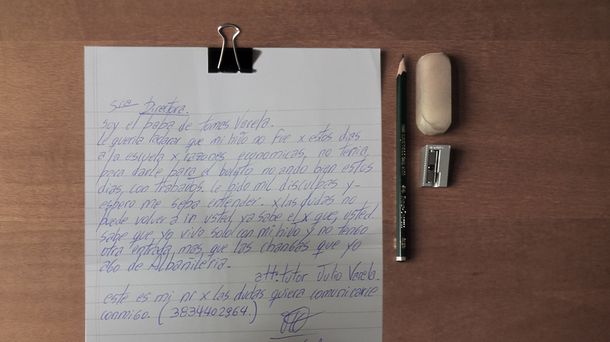 Sra Directora.
Soy el papá de Tomas Varela.
le queria informar que mi hijo no fue x estos dias
a la escuela x razones economicas, no tenia
para darle para el boleto no ando bien estos
dias, con trabajos. le pido mil disculpas y
espero me sepa entender. x las dudas no
puede volver a ir usted ya sabe el x que, usted
sabe que, yo vivo solo con mi hijo y no tengo
otra entrada mas que las changas que yo
ago de Albañileria.
att. tutor Julio Varela.
este es mi nr x las dudas quiera comunicarce
conmigo. (3834402964.)